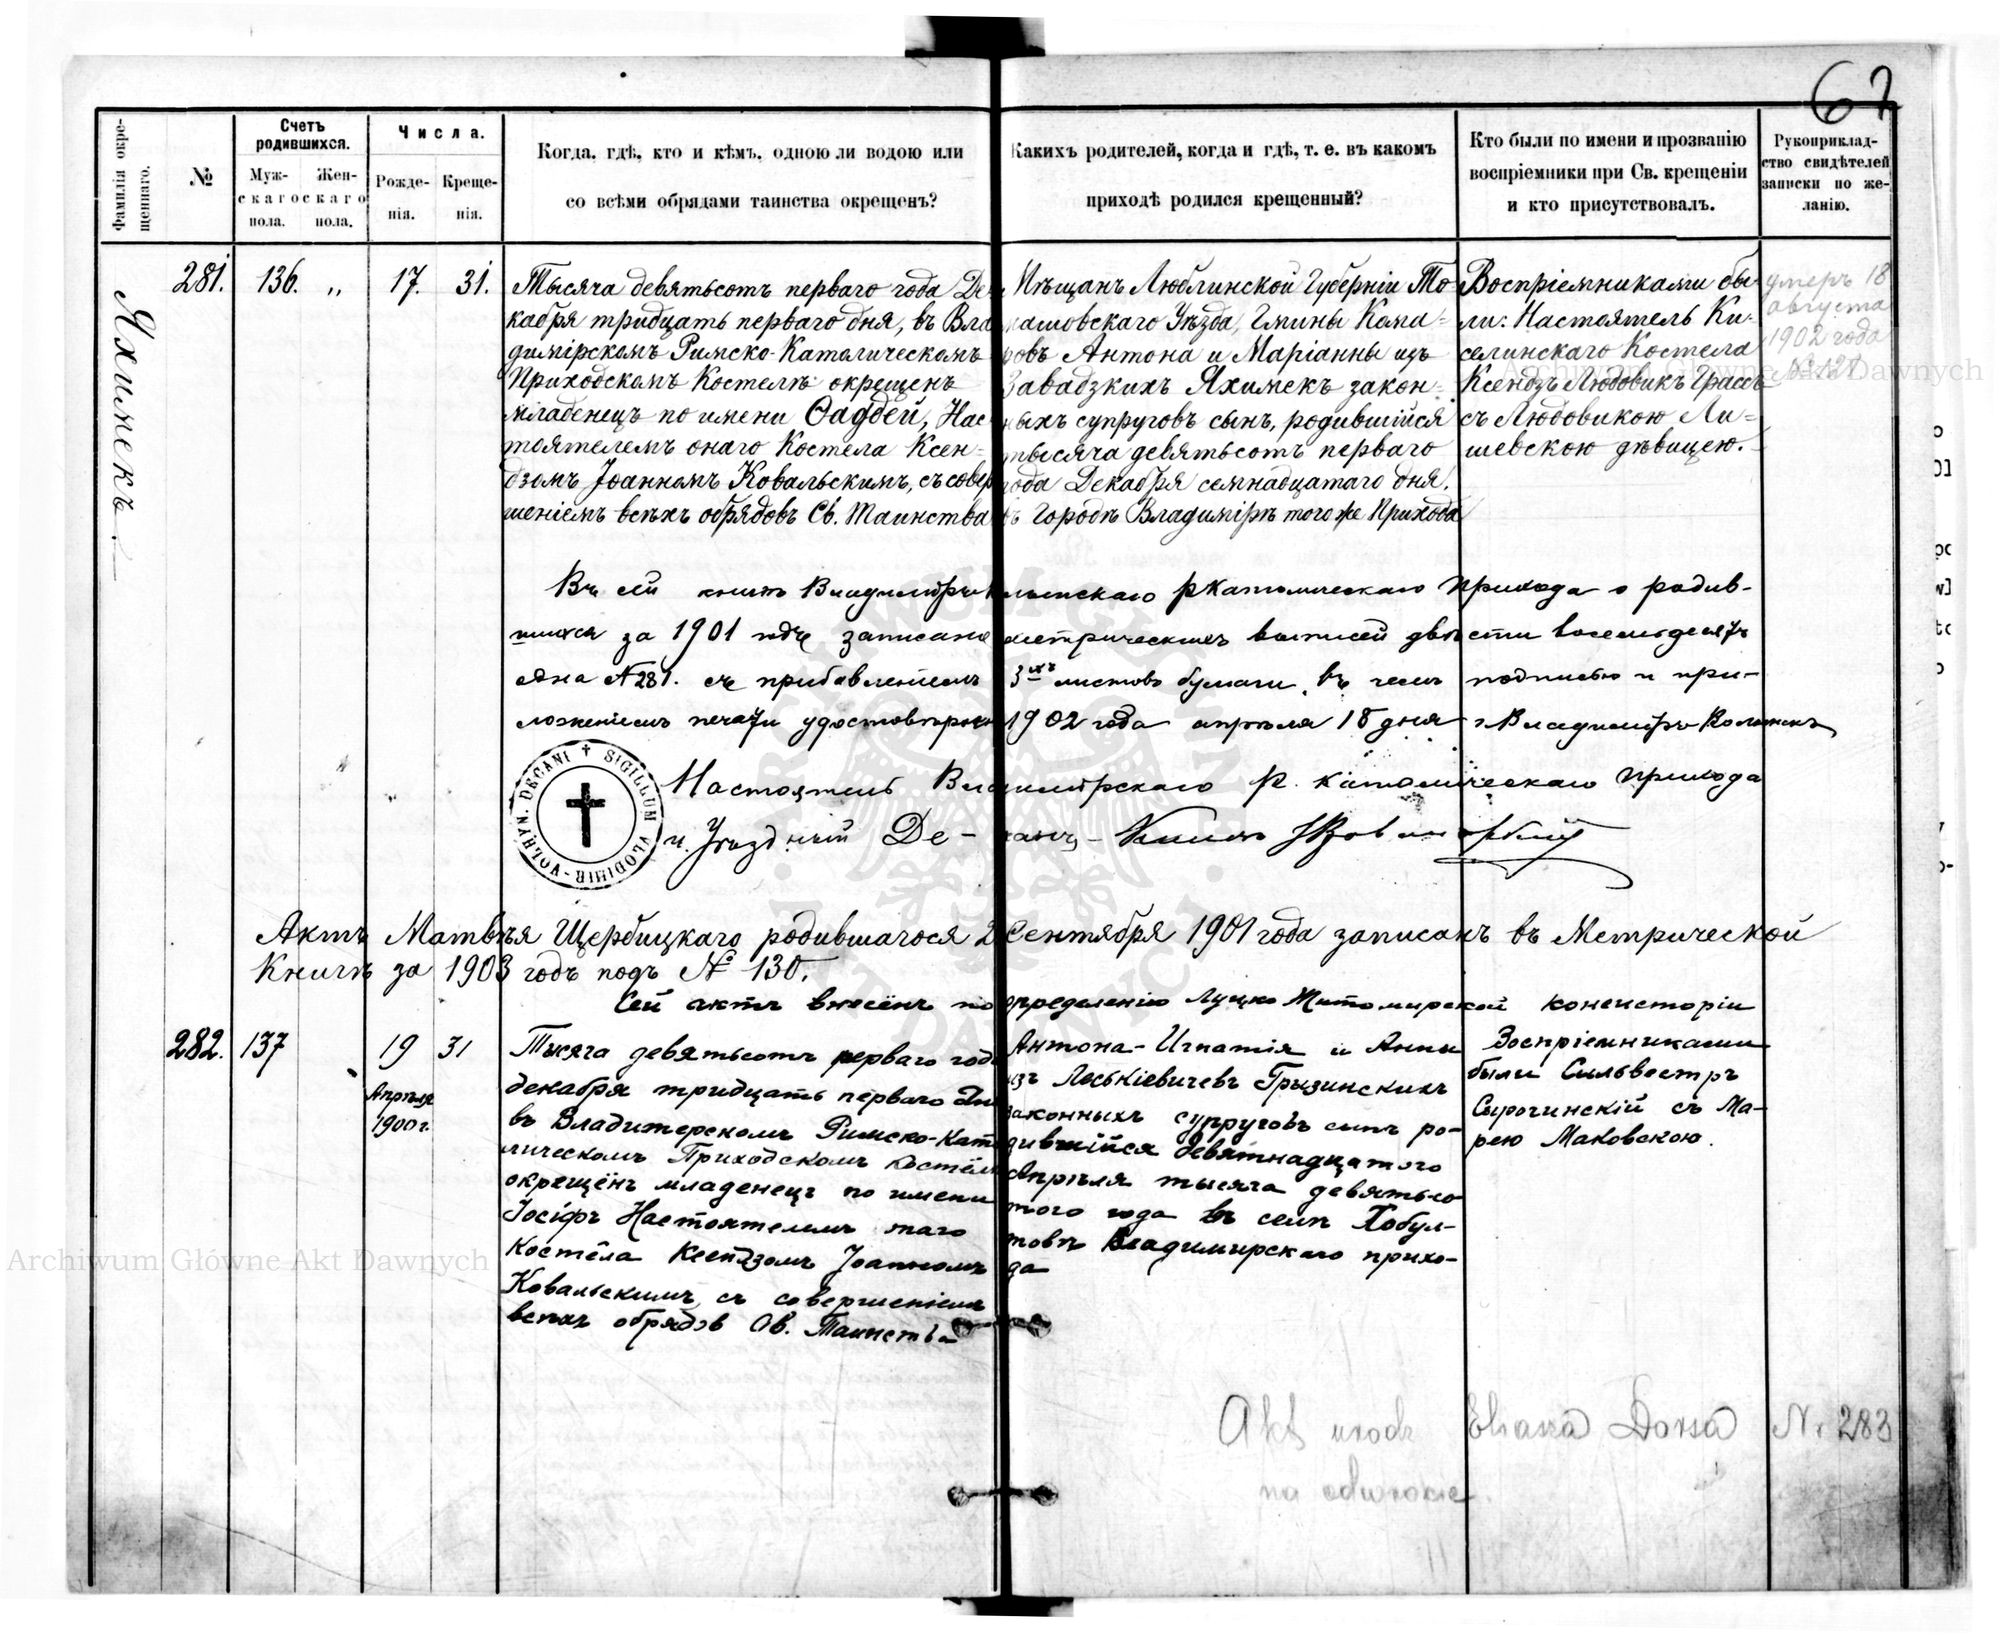 67
Фамилія окре-
щеннаго.
№
Счетъ
родившихся.
Муж-
скаго
пола.
Жен-
скаго
пола.
Числа.
Рожде-
нія.
Креще-
нія.
Когда, гдѣ, кто и кѣмъ, одною ли водою или
со всѣми обрядами таинства окрещенъ?
Какихъ родителей, когда и гдѣ, т. е. въ какомъ
приходѣ родился крещенный?
Кто были по имени и прозванію
воспріемники при Св. крещеніи
и кто присутствовалъ.
Рукоприклад-
ство свидѣтелей
записки по же-
ланію.
Яхимекъ.
281. 136. „ 17. 31.
Тысяча девятьсотъ перваго года Де-
кабря тридцать перваго дня, въ Вла
димірскомъ Римско-Католическомъ
Приходскомъ Костелѣ окрещенъ
младенецъ по имени Ѳаддей, Нас-
тоятелемъ онаго Костела Ксен-
дзомъ Іоанномъ Ковальскимъ, съ совер
шеніемъ всѣхъ обрядовъ Св. Таинства
Мѣщанъ Люблинской Губерніи То-
машовскаго Уѣзда, Гмины Кома-
ровъ Антона и Маріанны изъ
Завадзкихъ Яхимекъ закон-
ныхъ супруговъ сынъ, родившійся
тысяча девятьсотъ перваго
года Декабря семнадцатаго дня
въ Городѣ Владимірѣ того же Прихода
Воспріемниками бы-
ли: Настоятель Ки-
селинскаго Костела
Ксендзъ Людовикъ Грассъ
съ Людовикою Ли-
шевскою дѣвицею.
умеръ 18
августа
1902 года
№ 128
Въ сей книгѣ Владиміръ-Волынскаго р Католическаго прихода о родив-
шихся за 1901 годъ записано метрическихъ выписей двѣсти восемьдесятъ
одна № 281. съ прибавленіемъ 3хъ листовъ бумаги, въ чемъ подписью и при-
ложеніемъ печати удостовѣряю 1902 года апрѣля 18 дня г. Владиміръ-Волынскъ
SIGILLUM VLODIMIR-VOLHYN. DECANI
Настоятель Владимірскаго Р. католическаго прихода
и Уѣздный Де-канъ
Актъ Матвѣя Щербицкаго родившагося 2 Сентября 1901 года записанъ въ Метрической
Книгѣ за 1903 годъ подъ № 130.
Сей актъ внесёнъ по определенію Луцко Житомирской консисторіи
282. 137 19 31
Апрѣля
1900 г.
Тысяча девятьсотъ перваго года
декабря тридцать перваго дня
въ Владимерскомъ Римско-Като
лическомъ Приходскомъ костёлѣ
окрещёнъ младенецъ по имени
Іосіфъ Настоятелемъ таго
Костёла Ксендзомъ Іоанномъ
Ковальскимъ съ совершеніемъ
всѣхъ обрядов Св. Таинства
Антона-Игнатія и Анны
изъ Леськіевичевъ Грызинскихъ
законныхъ супруговъ сынъ ро-
дившійся девятнадцатого
Апрѣля тысяча девятьсо
того года въ селѣ Хобул-
товѣ Владимирскаго прихо-
да
Воспріемниками
были Сильвестръ
Сырочинскій съ Ма-
рею Маковскою.
Akt urodz Eliasza Dorsa Nr 283
na odwrocie.
Archiwum Główne Akt Dawnych
Archiwum Główne Akt Dawnych
ARCHIWUM GŁÓWNE AKT DAWNYCH